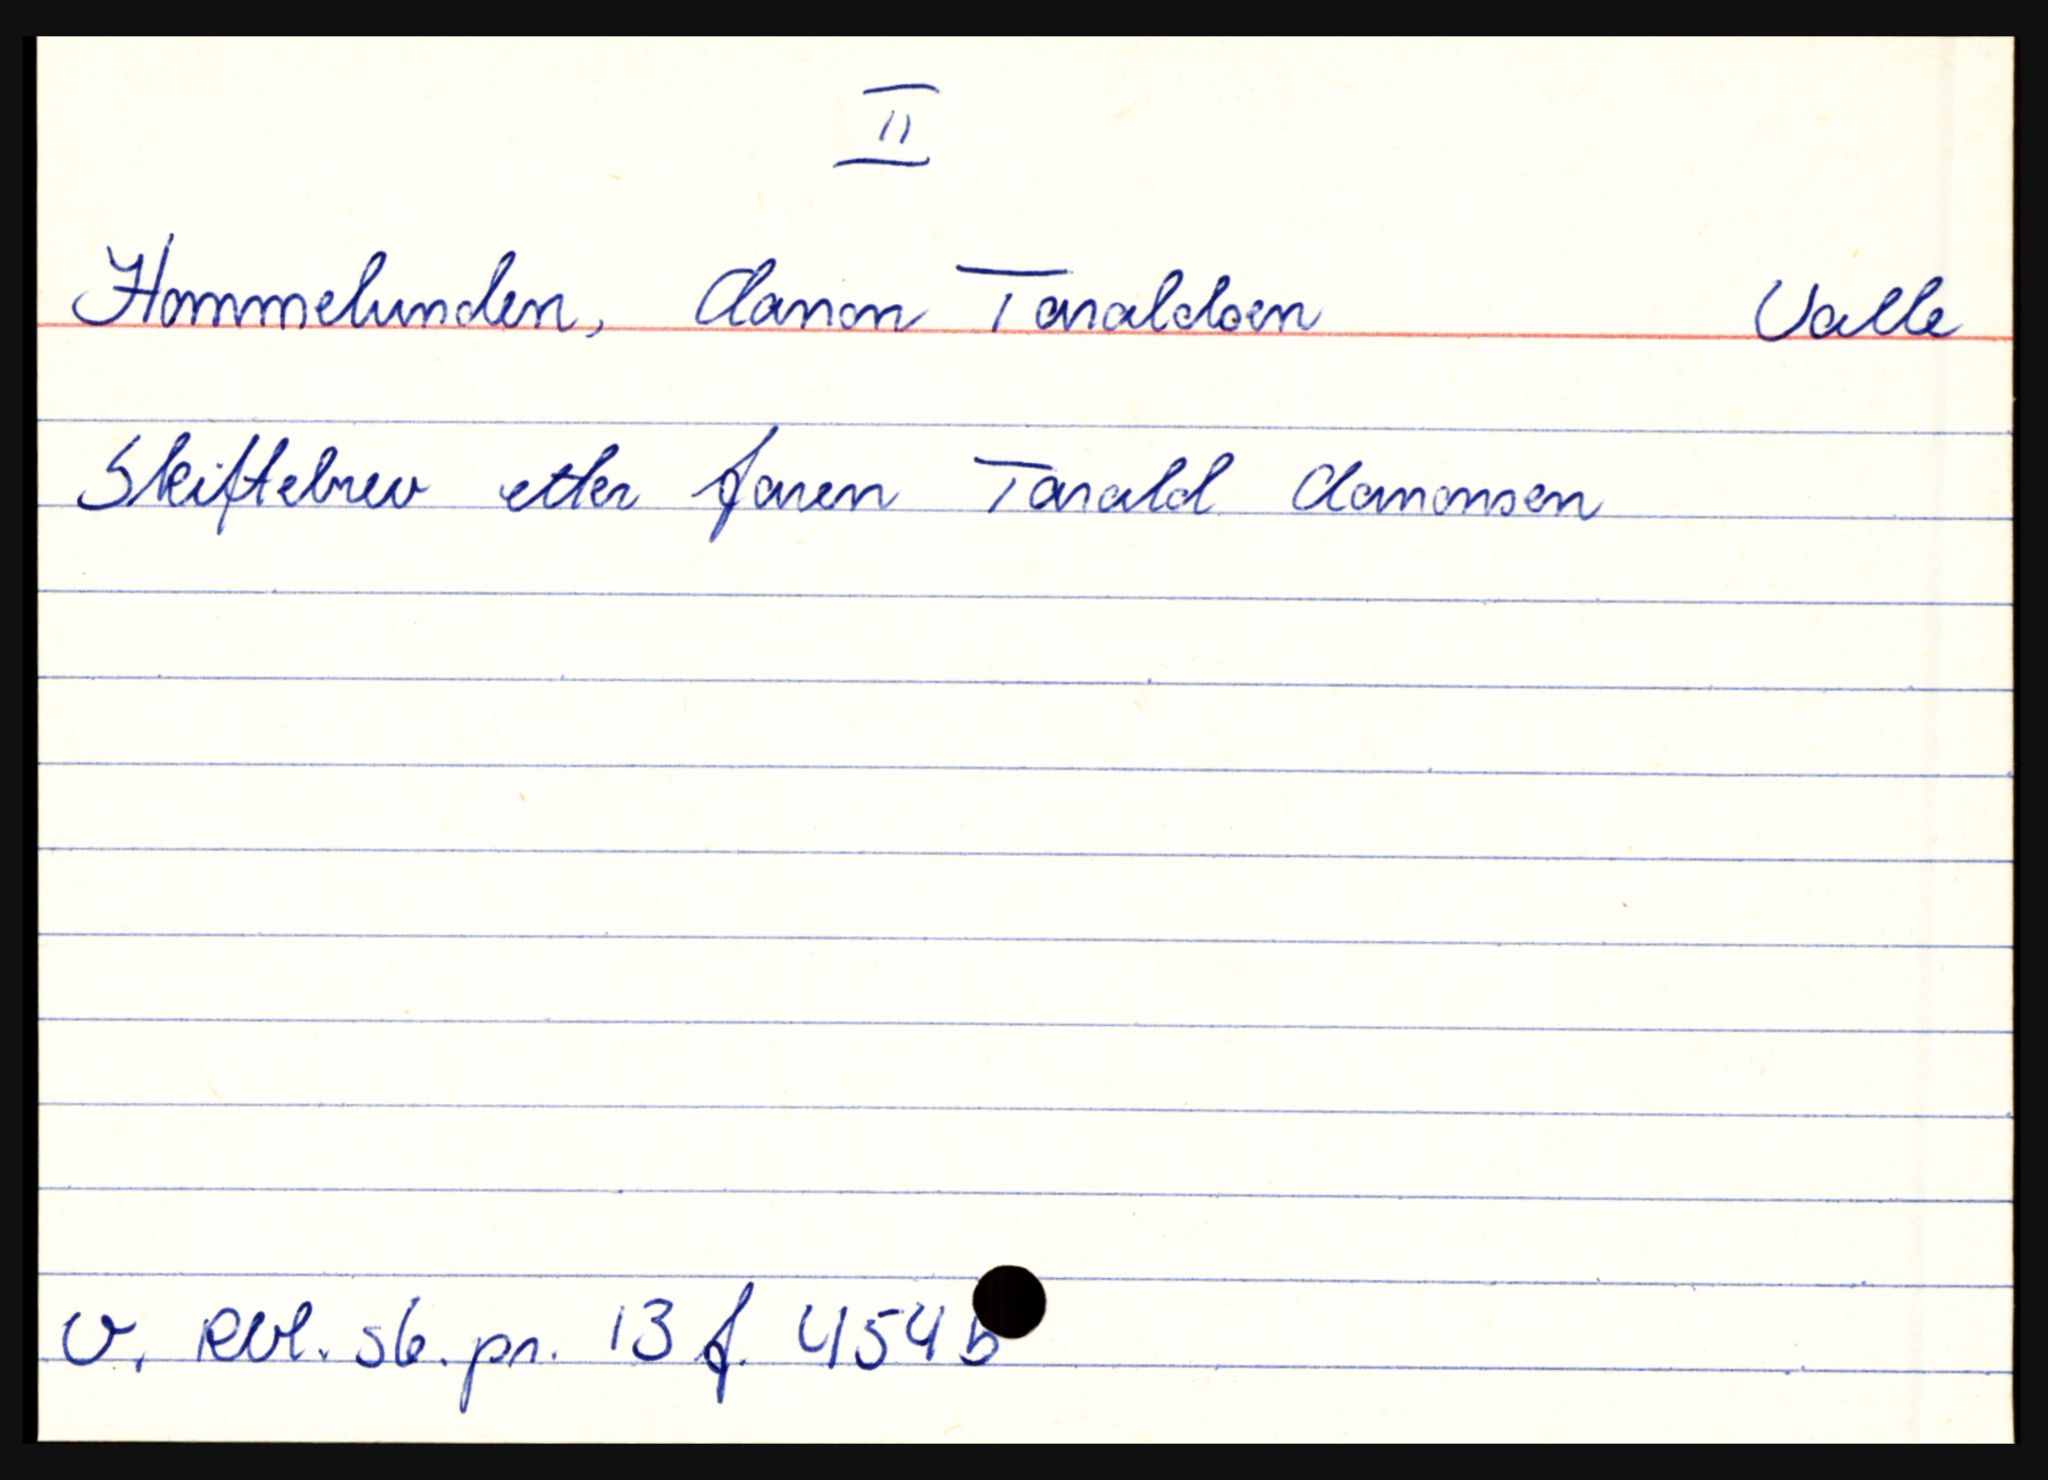 II
Hommelunden, Aanon Taraldsen Valle
Skiftebrev etter faren Tarald Aanonsen
V. Rbl. sk. pr. 13 f. 454 b